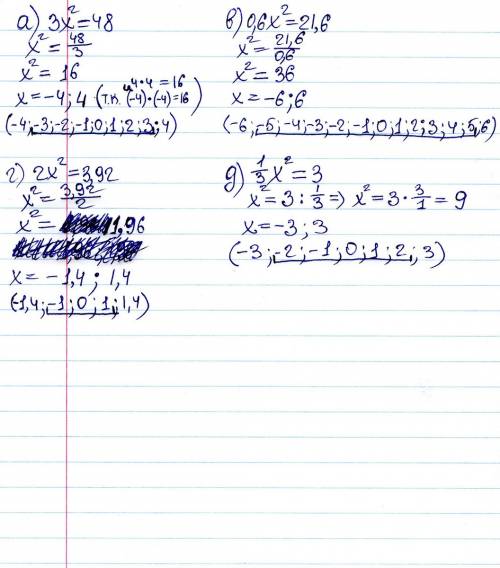 а) 3x²=48
x²=48/3
x² = 16
4·4=16
x=-4; 4 (т.к. и (-4)·(-4)=16)
(-4;-3;-2;-1;0;1;2;3;4)
в) 0,6x²=21,6
x²=21,6/0,6
x²=36
x=-6;6
(-6;-5;-4;-3;-2;-1;0;1;2;3;4;5;6)
г) 2x²=3,92
x²=3,92/2
x²= 1,96
x=-1,4; 1,4
(-1,4;-1;0;1;1,4)
д) 1/3x²=3
x²=3:1/3=) x²=3·3/1=9
x=-3;3
(-3;-2;-1;0;1;2;3)